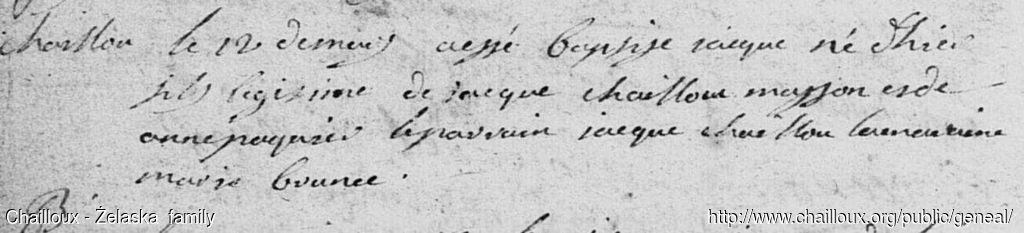 chaillou le 12 de mars a esté baptisse jacque né d'hier
fils legitime de jacque chaillou masson et de
anne paquier le parrain jacque chaillou la maraine
marie brunee.
Chailloux - Żelaska family
http://www.chailloux.org/public/geneal/